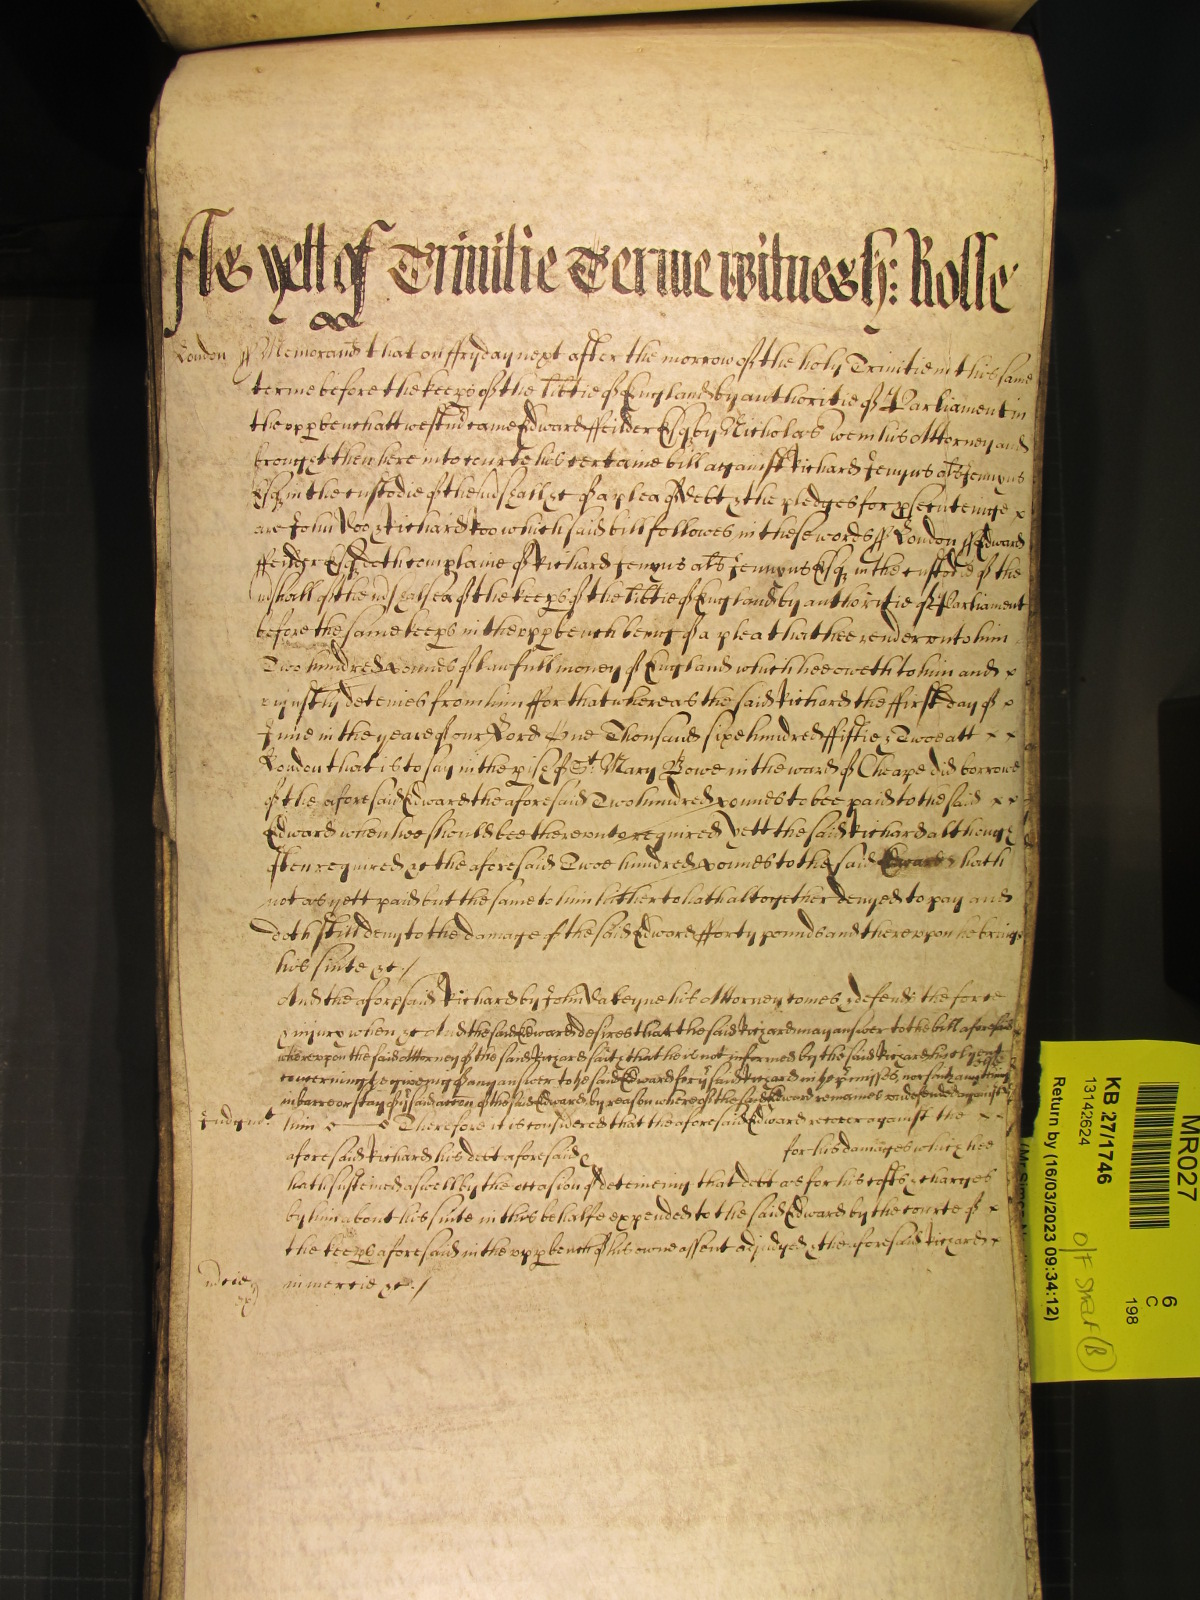 As yett of Trinitie Terme witnes H: Rolle
London ss Memorand that on ffryday next after the morrow of the holy Trinitie in this same
terme before the keeps of the libtie of England by authoritie of Parliament in
the upp bench att westm came Edward ffeilder Esq by Nicholas his Attorney and
brought then here into court his certaine bill against Richard Jenyns als Jennyns
Esq in the custodie of the mshall &c of a plea of debt & the pledges for psecuteinge x
are John Doo & Richard Roo which said bill followes in these words ss London ss Edward
ffeilder Esq doth complaine of Richard Jenyns als Jennyns Esq in the custodie of the
mshall of the mshalsea of the keeps of the libtie of England by authoritie of Parliament
before the same keeps in the upp bench being of a plea that hee render unto him
Two hundred pounes of lawfull money of England which hee oweth to him and x
uniustly deteines from him ffor that whereas the said Richard the ffirst day of x
June in the yeare of our Lord One Thousand sixe hundred ffiftie & Twoe att x x
London that is to say in the pish of St Mary Bowe in the ward of Cheape did borrowe
of the aforesaid Edward the aforesaid Two hundred pounes to bee paid to the said x x
Edward when hee should bee thereunto required yett the said Richard although
often required &c the aforesaid Twoe hundred pounes to the said Edward hath
not as yett paid but the same to him hitherto hath altogether denyed to pay and
doth still deny to the damage of the said Edward fforty pounds and thereupon he brings
his suite &c /
And the aforesaid Richard by John his Attorney comes & defends the force
& iniury when &c And the said Edward desires that the said Richard may answer to the bill aforesaid
whereupon the said Attorney of the said Richard saith that he is not informed by the said Richard his clyent
concerning the giveing of any answer to the said Edward for ye said Richard in the pmisses nor saith any thing
in barre or stay of ye said action of the said Edward by reason whereof the said Edward remaines undefended against
Judgmt him Therefore it is considered that the aforesaid Edward recover against the x x
aforesaid Richard his debt aforesaid & for his damages which hee
hath susteined aswell by the occasion of deteineing that debt as for his costs & charges
by him about his suite in this behalfe expended to the said Edward by the courte of x
the keeps aforesaid in the upp bench of his owne assent adiudged & the aforesaid Richard x
mcie in mercie &c /
MR027
KB 27/1746
13142624
6
C
198
O/F Shelf B
Return by (16/03/2023 09:34:12)